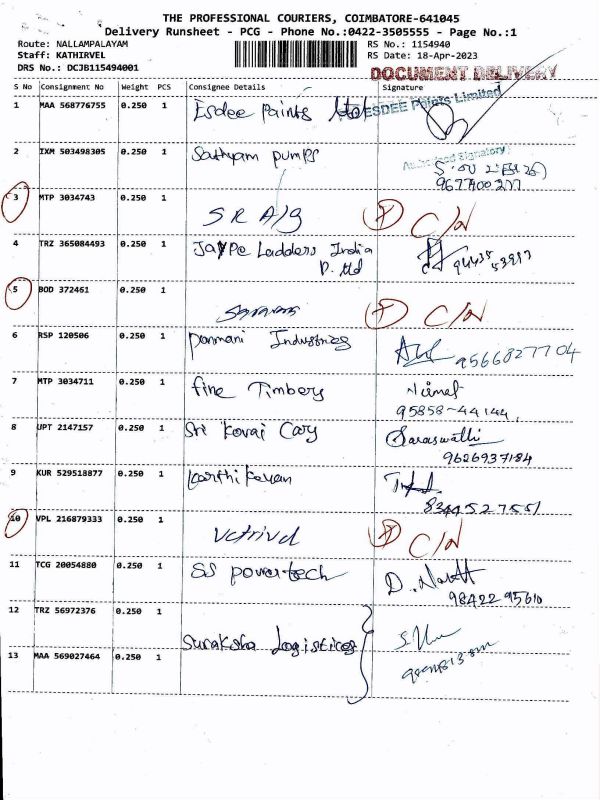 THE PROFESSIONAL COURIERS, COIMBATORE-641045
Delivery Runsheet - PCG - Phone No.:0422-3505555 - Page No.:1
Route: NALLAMPALAYAM
RS No.: 1154940
Staff: KATHIRVEL
RS Date: 18-Apr-2023
DRS No.: DCJB115494001
DOCUMENT DELIVERY
S No Consignment No Weight PCS Consignee Details Signature
1 MAA 568776755 0.250 1 Esdee Paints ESDEE Paints Limited
Authorised Signatory
2 IXM 503498305 0.250 1 Sathyam pumps
9677400277
3 MTP 3034743 0.250 1 SR A/G C/N
4 TRZ 365084493 0.250 1 Jaype Ladders India
P. Ltd
5 BOD 372461 0.250 1 C/N
6 RSP 120506 0.250 1 Ponmani Industries
9566827704
7 MTP 3034711 0.250 1 fine Timbers
95858-44144
8 UPT 2147157 0.250 1 Sri Kovai Cary Saraswathi
9626937184
9 KUR 529518877 0.250 1 Karthikeyan
8344527551
10 VPL 216879333 0.250 1 C/N
11 TCG 20054880 0.250 1 SS powertech
98422 95610
12 TRZ 56972376 0.250 1
Suraksha Logistices
13 MAA 569027464 0.250 1